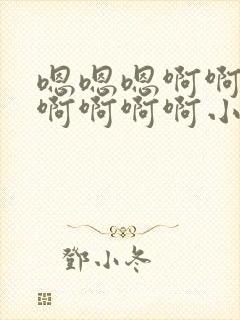 嗯嗯嗯啊啊
啊啊啊啊小
鄧小冬